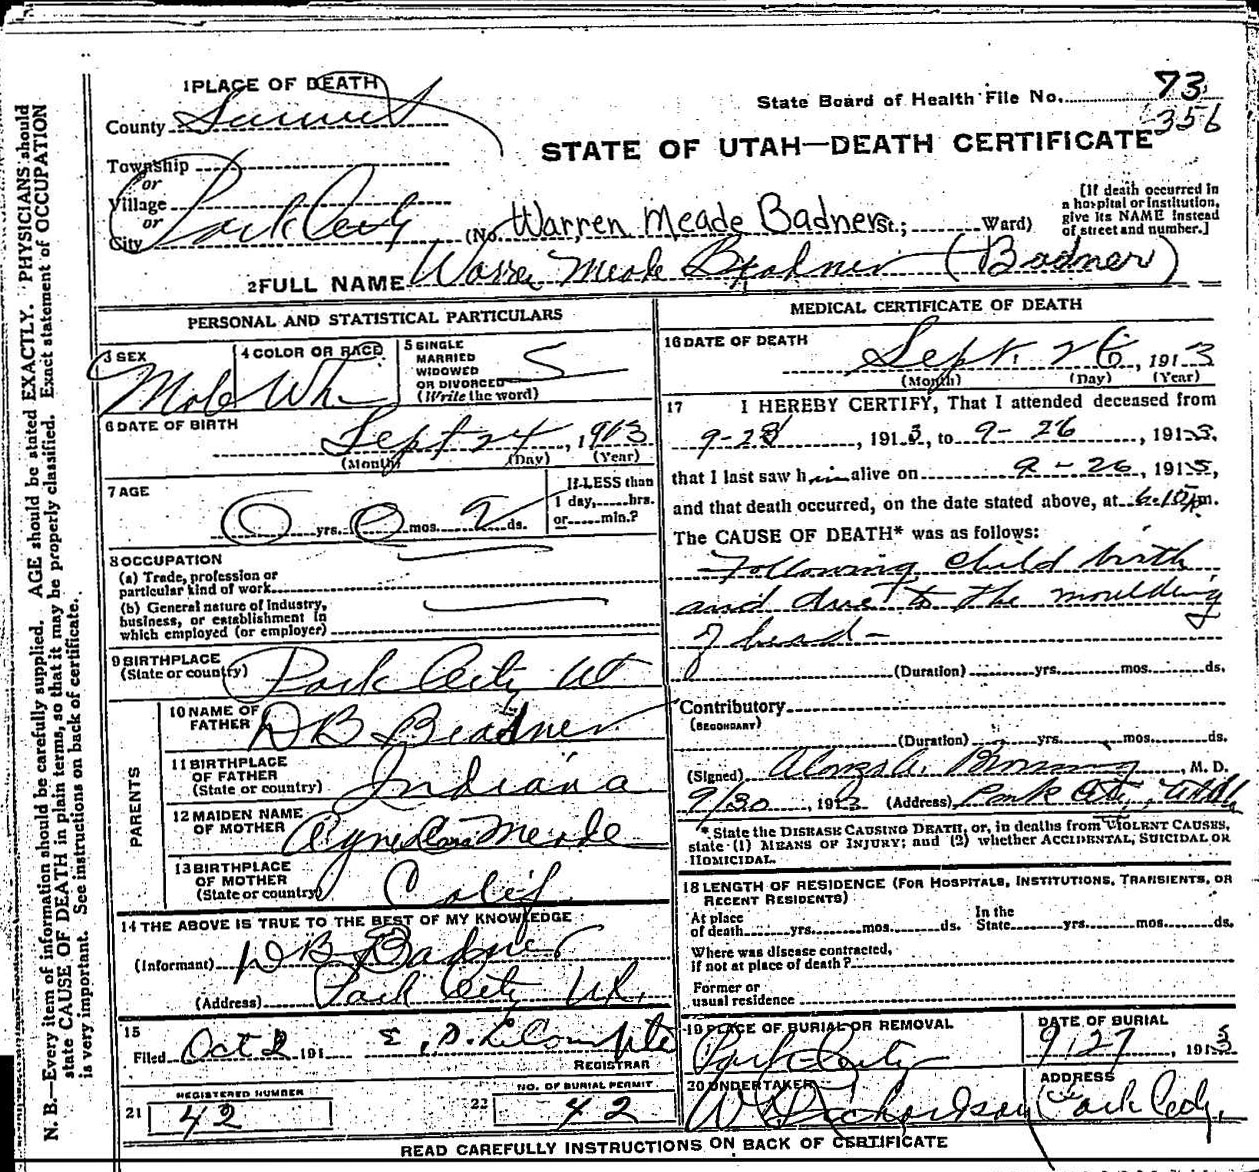 1 PLACE OF DEATH
County Summit
State Board of Health File No. 73
356
STATE OF UTAH—DEATH CERTIFICATE
Township
or
Village
or
City Park City
(No. Warren Meade Badner St.; Ward)
[If death occurred in
a hospital or institution,
give its NAME instead
of street and number.]
2 FULL NAME Warren Meade Badner (Badner)
PERSONAL AND STATISTICAL PARTICULARS
3 SEX
4 COLOR OR RACE Wh.
5 SINGLE
MARRIED
WIDOWED
OR DIVORCED S
(Write the word)
6 DATE OF BIRTH
Sept 24, 1913
(Month) (Day) (Year)
7 AGE
0 yrs. 0 mos. 2 ds.
If LESS than
1 day, hrs.
or min.?
8 OCCUPATION
(a) Trade, profession or
particular kind of work
(b) General nature of industry,
business, or establishment in
which employed (or employer)
9 BIRTHPLACE
(State or country) Park City Ut
PARENTS
10 NAME OF
FATHER D B Beadner
11 BIRTHPLACE
OF FATHER
(State or country) Indiana
12 MAIDEN NAME
OF MOTHER Meade
13 BIRTHPLACE
OF MOTHER
(State or country) Calif
14 THE ABOVE IS TRUE TO THE BEST OF MY KNOWLEDGE
(Informant) D B Badner
(Address) Park City Ut.
15
Filed Oct 2 191
REGISTRAR
21 REGISTERED NUMBER
42
22 NO. OF BURIAL PERMIT
42
MEDICAL CERTIFICATE OF DEATH
16 DATE OF DEATH
Sept. 26, 1913
(Month) (Day) (Year)
17 I HEREBY CERTIFY, That I attended deceased from
, 1913, to 9-26, 1913,
that I last saw him alive on 9-26, 1913,
and that death occurred, on the date stated above, at m.
The CAUSE OF DEATH* was as follows:
Following child birth
and due to the moulding
of head-
(Duration) yrs. mos. ds.
Contributory
(SECONDARY)
(Duration) yrs. mos. ds.
(Signed) M. D.
9/30, 1913 (Address) Park City, Utah
* State the DISEASE CAUSING DEATH, or, in deaths from VIOLENT CAUSES,
state (1) MEANS OF INJURY; and (2) whether ACCIDENTAL, SUICIDAL OR
HOMICIDAL.
18 LENGTH OF RESIDENCE (FOR HOSPITALS, INSTITUTIONS, TRANSIENTS, OR
RECENT RESIDENTS)
At place
of death yrs. mos. ds.
In the
State yrs. mos. ds.
Where was disease contracted,
if not at place of death?
Former or
usual residence
19 PLACE OF BURIAL OR REMOVAL
Park City
DATE OF BURIAL
9-27, 1913
20 UNDERTAKER
Richardson
ADDRESS
Park City.
READ CAREFULLY INSTRUCTIONS ON BACK OF CERTIFICATE
N. B.—Every item of information should be carefully supplied. AGE should be stated EXACTLY. PHYSICIANS should
state CAUSE OF DEATH in plain terms, so that it may be properly classified. Exact statement of OCCUPATION
is very important. See instructions on back of certificate.